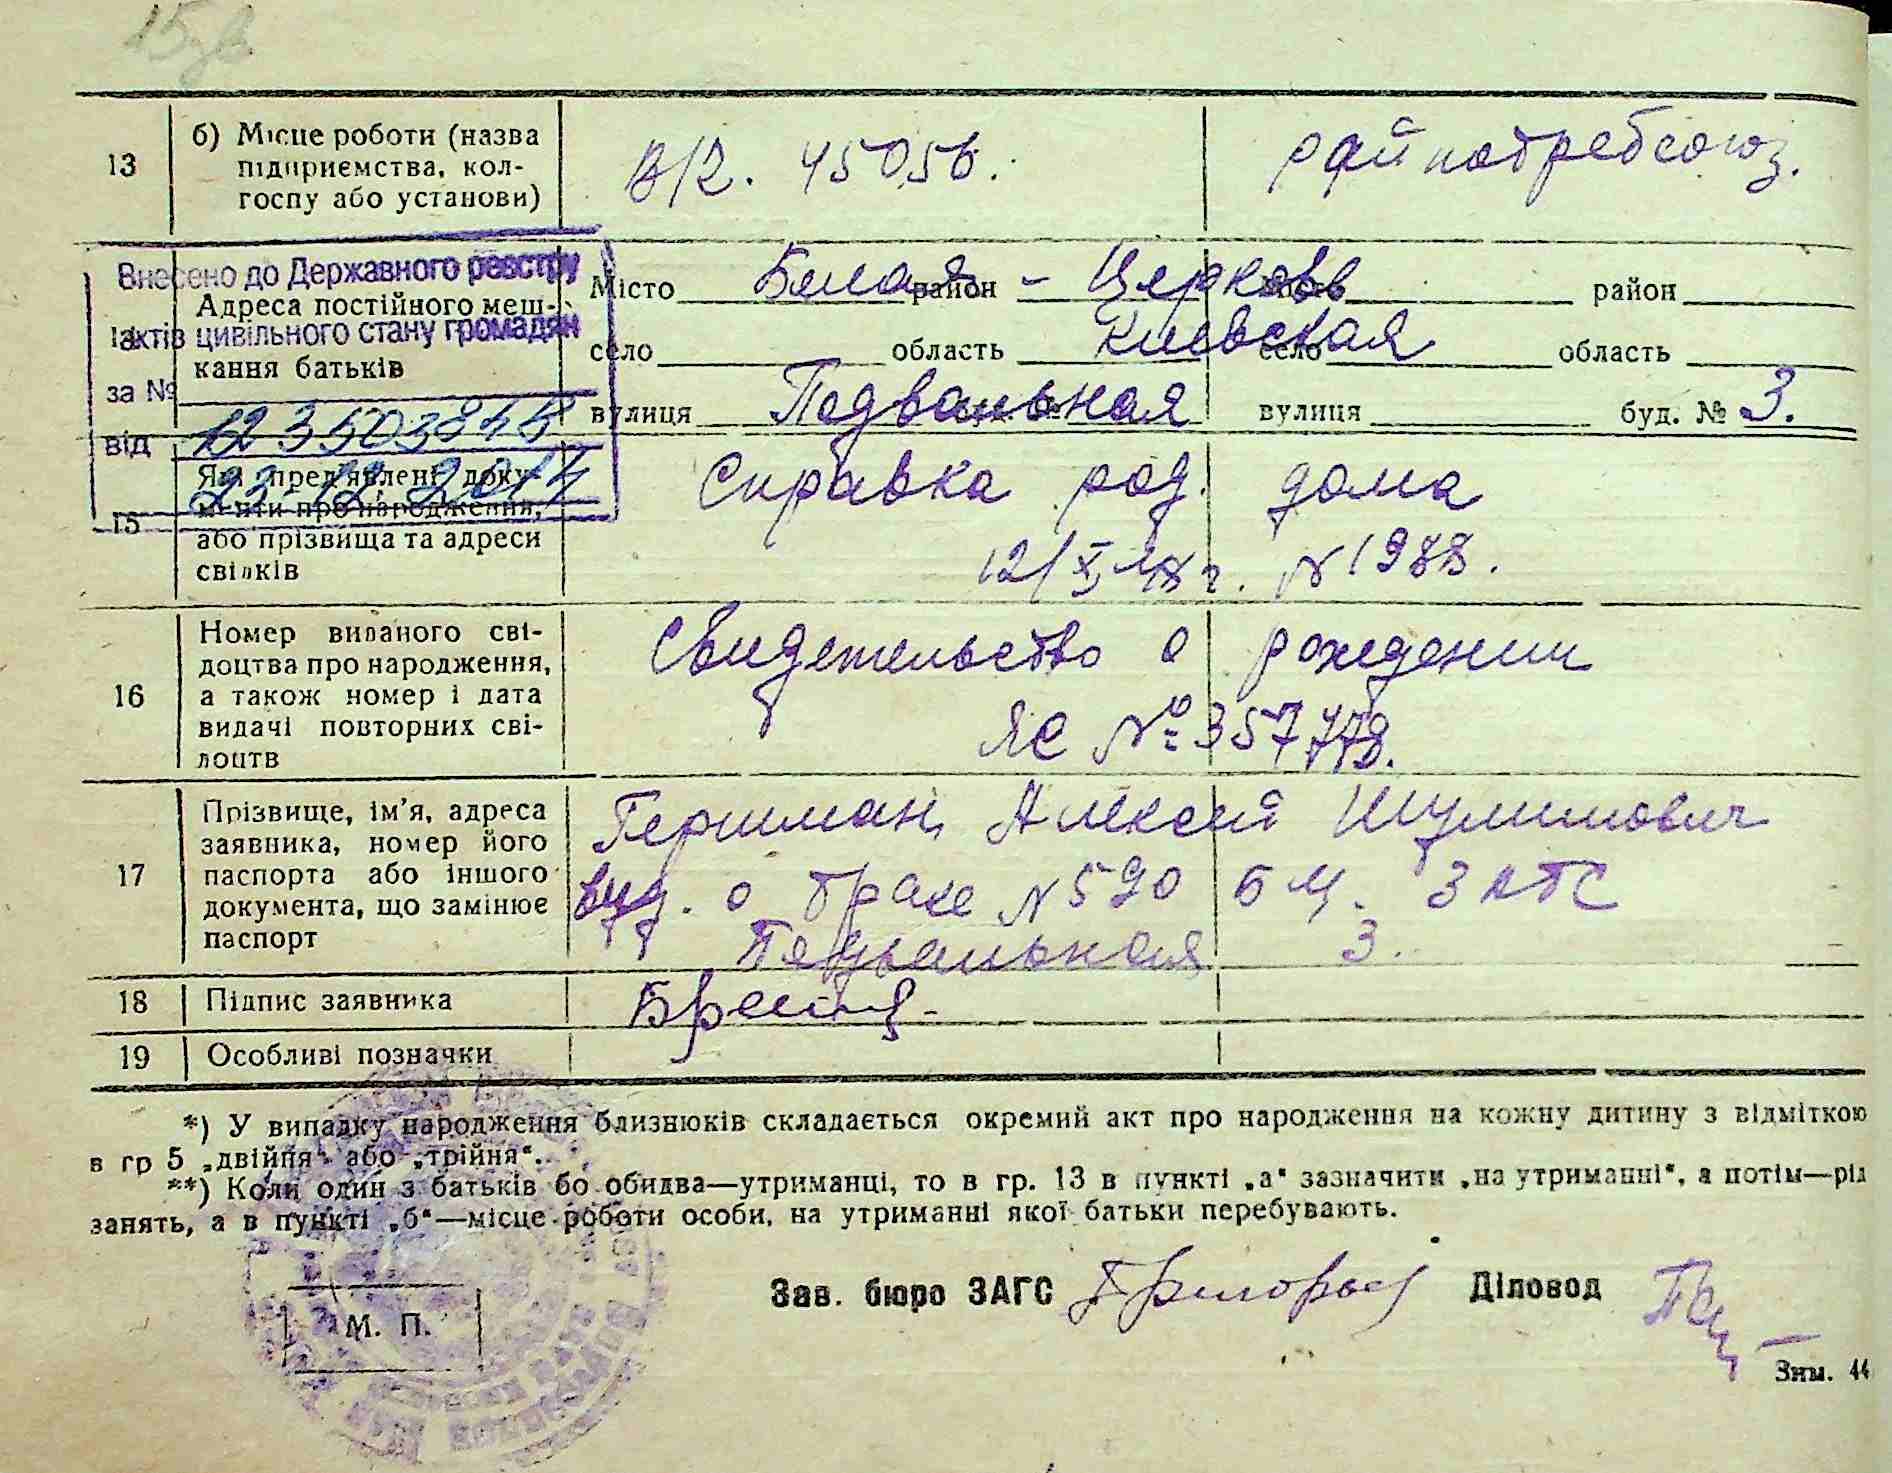 15 зв.
13 б) Місце роботи (назва підприємства, колгоспу або установи)
В/Ч. 45056. райпотребсоюз.
Внесено до Державного реєстру
актів цивільного стану громадян
за № 
від 23.12.2017
Адреса постійного мешкання батьків
Місто Белая - Церковь район район
село область Киевская село область
вулиця Подвальная вулиця буд. № 3.
15 Які пред'явлені документи про народження, або прізвища та адреси свідків
Справка род. дома
12/X г. N 1988.
16 Номер виданого свідоцтва про народження, а також номер і дата видачі повторних свідоцтв
Свидетельство о рождении
ЯС № 357778.
17 Прізвище, ім'я, адреса заявника, номер його паспорта або іншого документа, що замінює паспорт
Гершман Алексей Шулимович
о браке N 590 БЦ. ЗАГС
Подвальная 3.
18 Підпис заявника
19 Особливі позначки
*) У випадку народження близнюків складається окремий акт про народження на кожну дитину з відміткою
в гр 5 „двійня“ або „трійня“.
**) Коли один з батьків бо обидва—утриманці, то в гр. 13 в пункті „а“ зазначити „на утриманні“, а потім—рід
занять, а в пункті „б“—місце роботи особи, на утриманні якої батьки перебувають.
Зав. бюро ЗАГС Діловод
М. П.
Зим. 44